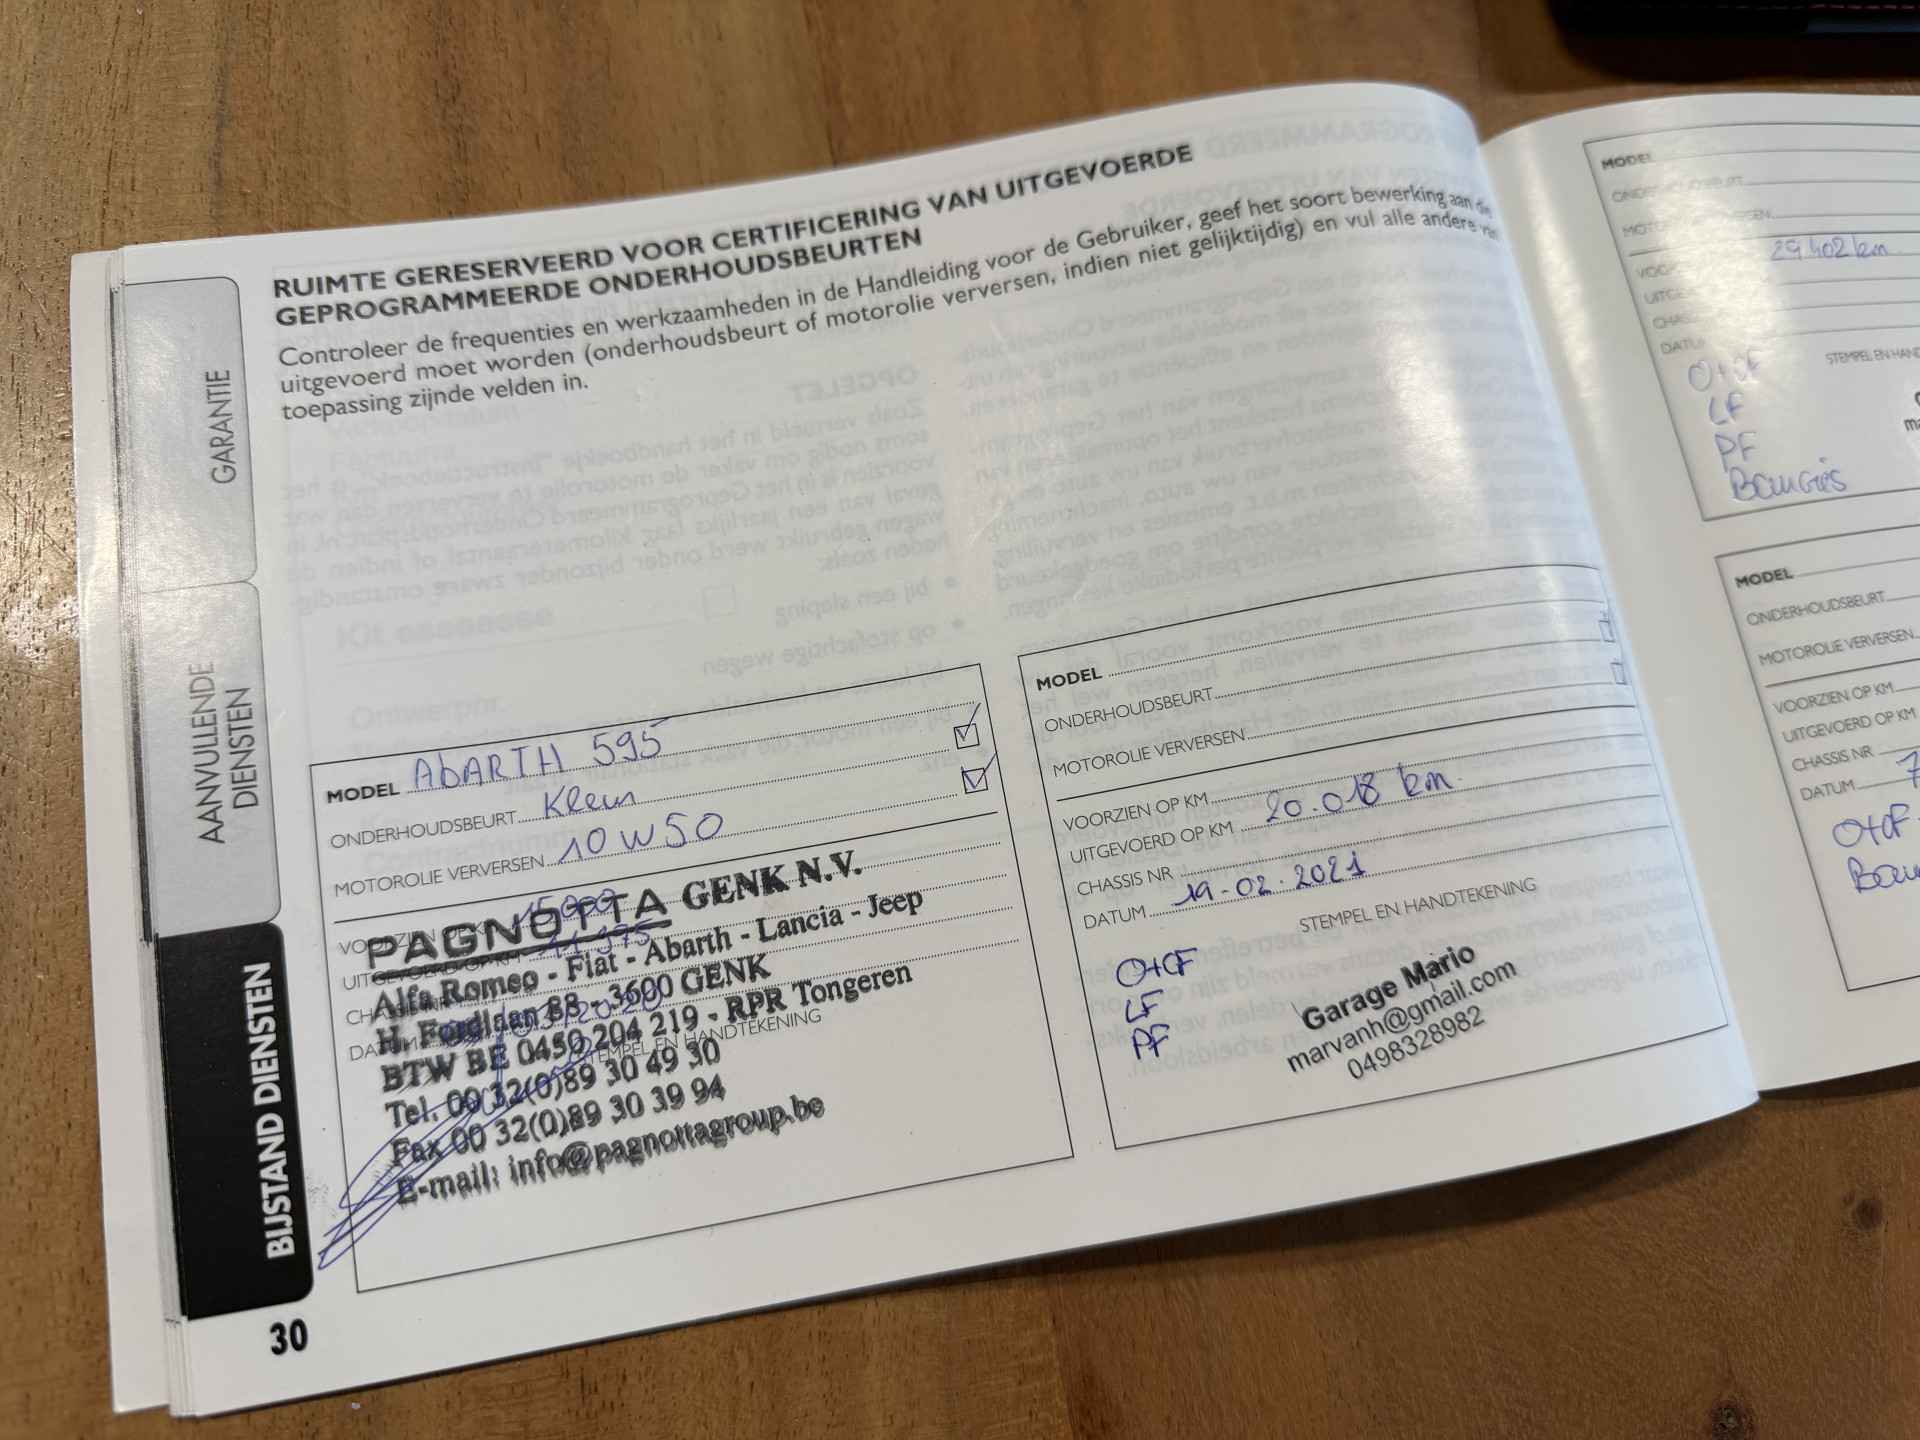 RUIMTE GERESERVEERD VOOR CERTIFICERING VAN UITGEVOERDE
GEPROGRAMMEERDE ONDERHOUDSBEURTEN
Controleer de frequenties en werkzaamheden in de Handleiding voor de Gebruiker, geef het soort bewerking aan die
uitgevoerd moet worden (onderhoudsbeurt of motorolie verversen, indien niet gelijktijdig) en vul alle andere van
toepassing zijnde velden in.
GARANTIE
AANVULLENDE
DIENSTEN
BIJSTAND DIENSTEN
MODEL AbARTH 595
ONDERHOUDSBEURT Klein
MOTOROLIE VERVERSEN 10 W 50
VOORZIEN OP KM 15000
UITGEVOERD OP KM 11 375
CHASSIS NR
DATUM
STEMPEL EN HANDTEKENING
PAGNOTTA GENK N.V.
Alfa Romeo - Fiat - Abarth - Lancia - Jeep
H. Fordlaan 88 - 3600 GENK
BTW BE 0450 204 219 - RPR Tongeren
Tel. 00 32(0)89 30 49 30
Fax 00 32(0)89 30 39 94
E-mail: info@pagnottagroup.be
30
MODEL
ONDERHOUDSBEURT
MOTOROLIE VERVERSEN
VOORZIEN OP KM
UITGEVOERD OP KM 20.018 km.
CHASSIS NR
DATUM 19-02-2021
STEMPEL EN HANDTEKENING
O+OF
LF
PF
Garage Mario
marvanh@gmail.com
0498328982
MODEL
ONDERHOUDSBEURT
MOTOROLIE VERVERSEN
29402 km
DATUM
STEMPEL EN
O+OF
LF
PF
Bougies
MODEL
ONDERHOUDSBEURT
MOTOROLIE VERVERSEN
VOORZIEN OP KM
UITGEVOERD OP KM
CHASSIS NR
DATUM 7
O+OF